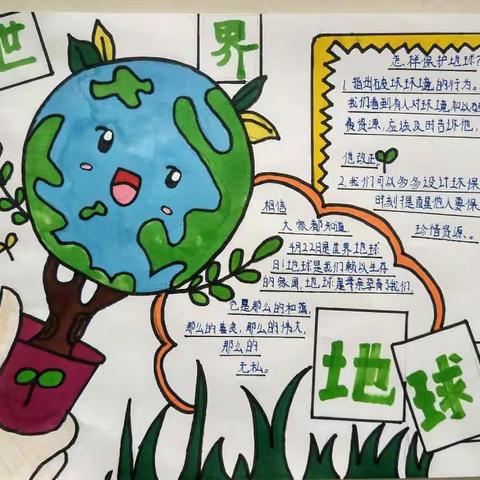 世界
怎样保护地球?
1.指出破坏环境的行为。
我们看到有人对环境加以
费资源,应该及时告诉他,
他改正
2.我们可以多多设计环保
时刻提醒他人要保
珍惜资源、。
相信
大家都知道
4月22日是世界地球
日!地球是我们赖以生存
的家园,地球母亲孕育了我们
它是那么的和蔼,
那么的善良,那么的伟大,
那么的
无私。
地球